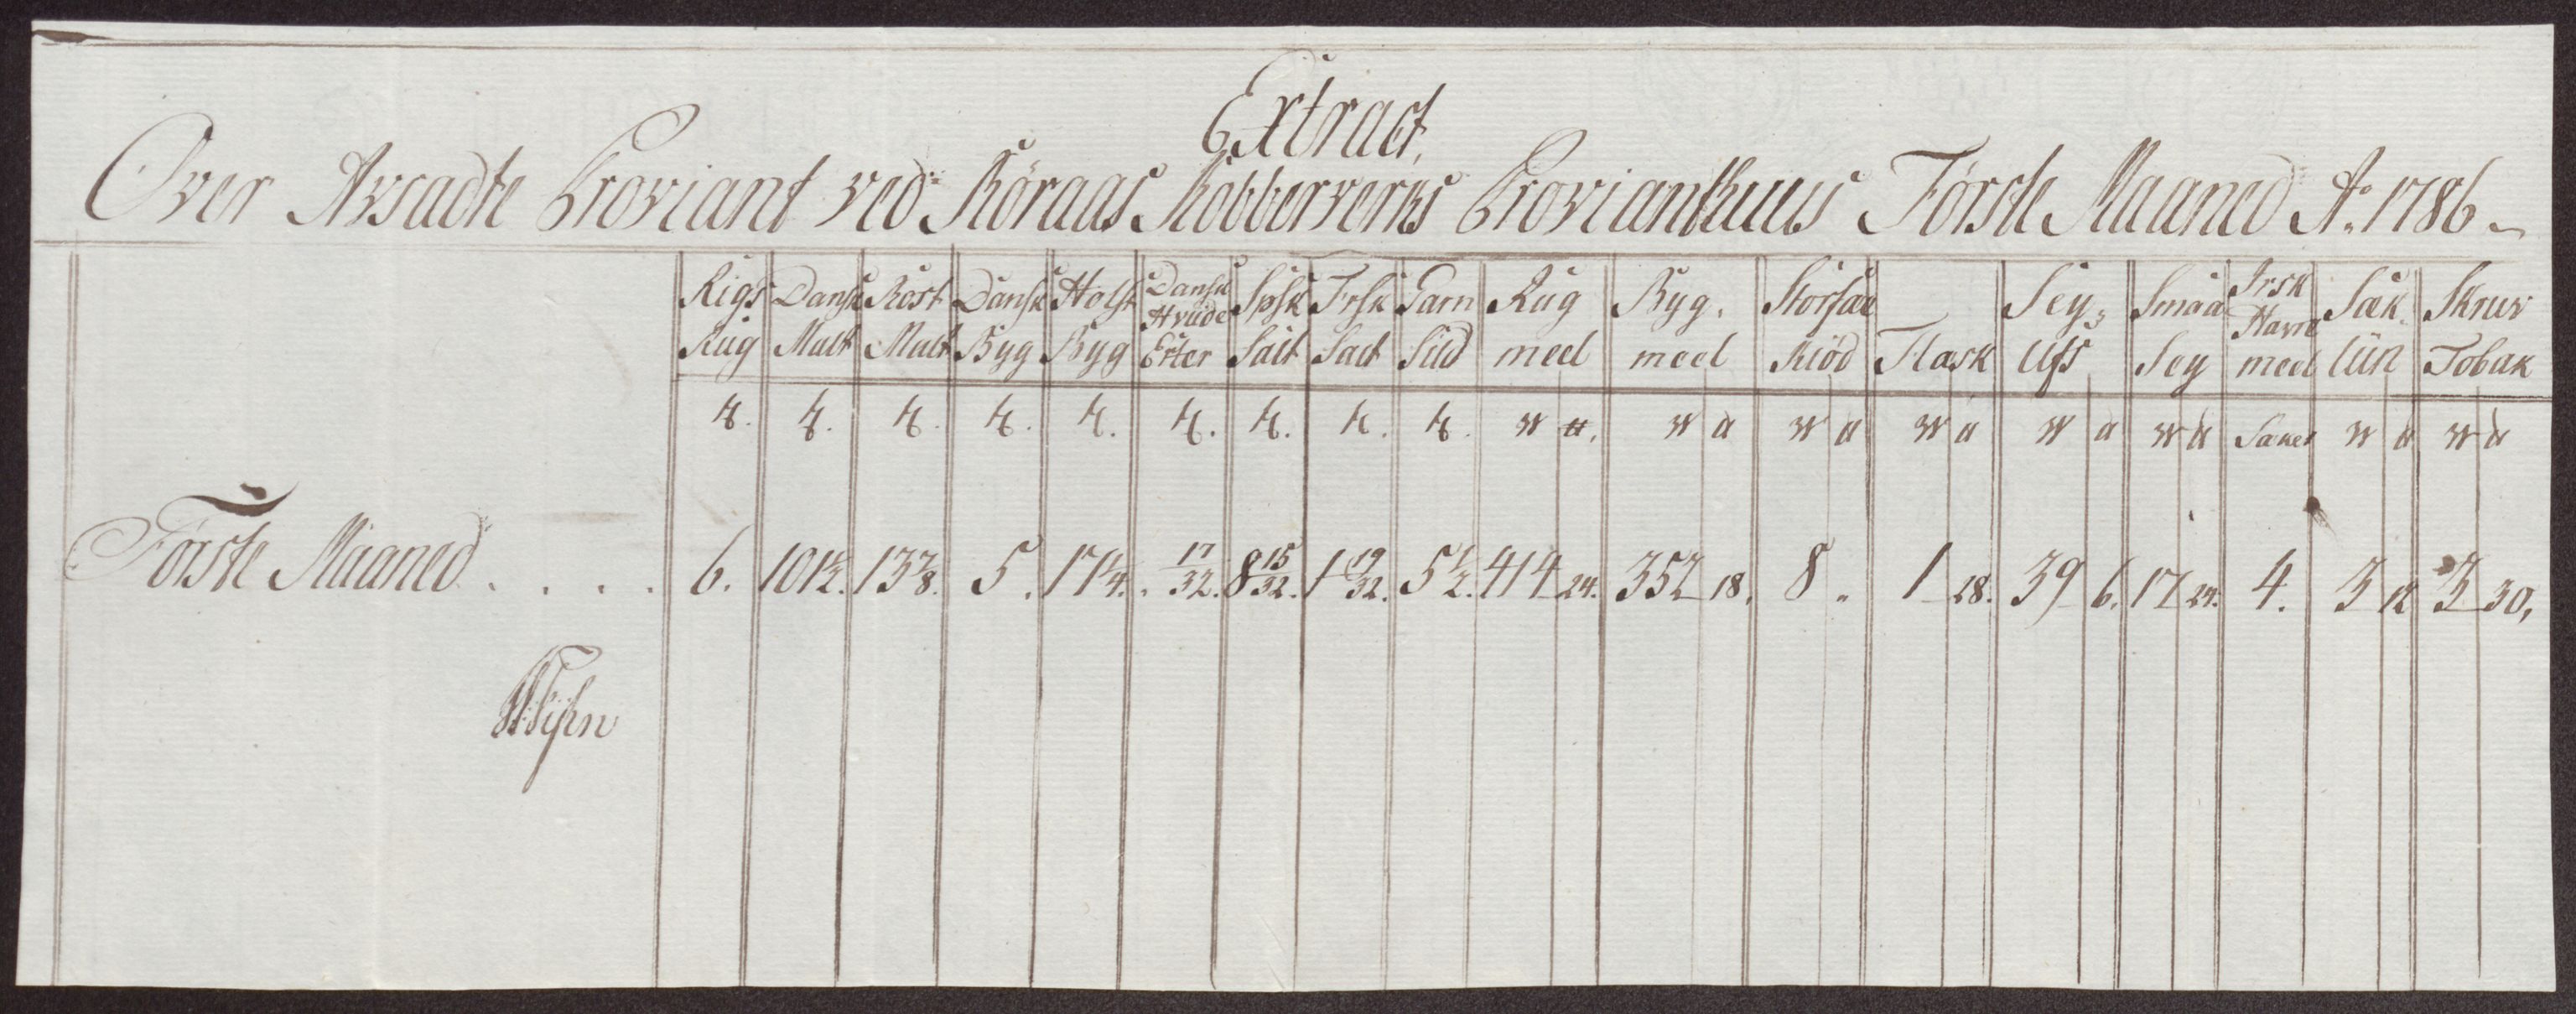 Extract,
Over Avsadte Proviant ved Röraas Kobberverks Provianthuus Første Maaned Ao. 1786
Rigs Rug | Dansk Malt | Rost Malt | Dansk Byg | Holst Byg | Dansk Hvide Erter | Spsk Salt | Frsk Salt | Tarn Sild | Rug meel | Byg. meel | Storsæe Kiöd | Flæsk | Sey, Ufs | Smaa Sey | Irsk Havre meel | Sæk Liin | Skruv Tobak
W | W | W | W | W | W | W | Sækes | W | W
Første Maaned . . . . 6. | 101½. | 13⅞. | 5. | 17¼. | 17/32. | 8 15/32. | 1 19/32. | 5½. | 414 24. | 352 18. | 8 " | 1 18. | 39 6. | 17 24. | 4. | 3 12 | 3 30,